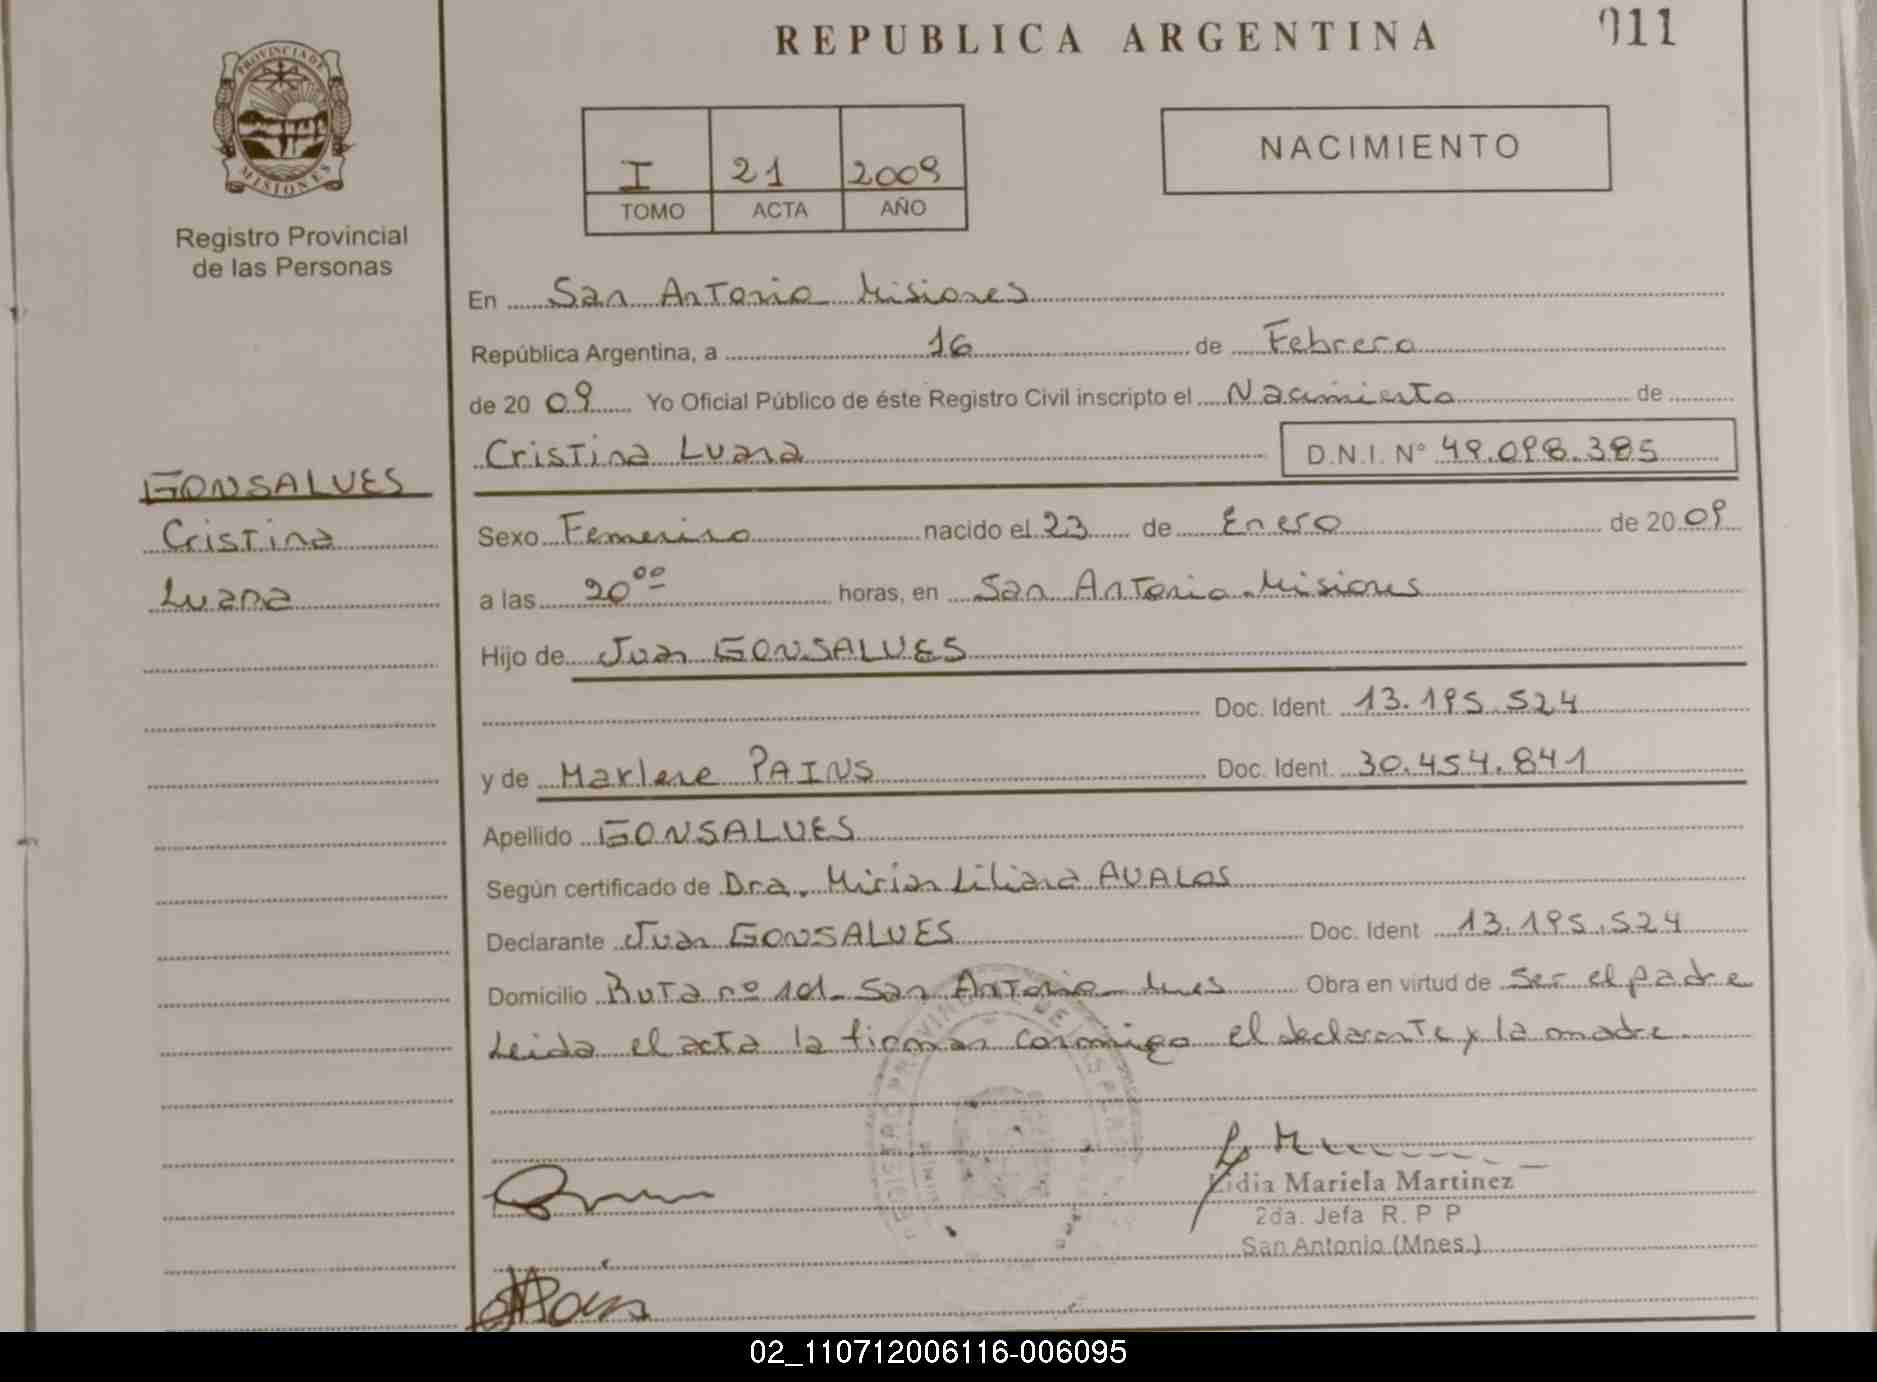 REPUBLICA ARGENTINA
011
PROVINCIA DE
MISIONES
Registro Provincial
de las Personas
I 21 2009
TOMO ACTA AÑO
NACIMIENTO
En San Antonio Misiones
República Argentina, a 16 de Febrero
de 20 09 Yo Oficial Público de éste Registro Civil inscripto el Nacimiento de
Cristina Luana D.N.I. Nº 49.098.385
GONSALVES
Cristina
Luana
Sexo Femenino nacido el 23 de Enero de 20 09
a las 20⁰⁰ horas, en San Antonio-Misiones
Hijo de Juan GONSALVES
Doc. Ident. 13.195.524
y de Marlene PAINS Doc. Ident. 30.454.841
Apellido GONSALVES
Según certificado de Dra. Mirian Liliana AVALOS
Declarante Juan GONSALVES Doc. Ident 13.195.524
Domicilio Ruta nº 101- San Antonio- Mnes Obra en virtud de ser el padre
Leida el acta la firman conmigo el declarante y la madre
Lidia Mariela Martinez
2da. Jefa R. P P
San Antonio (Mnes.)
02_110712006116-006095